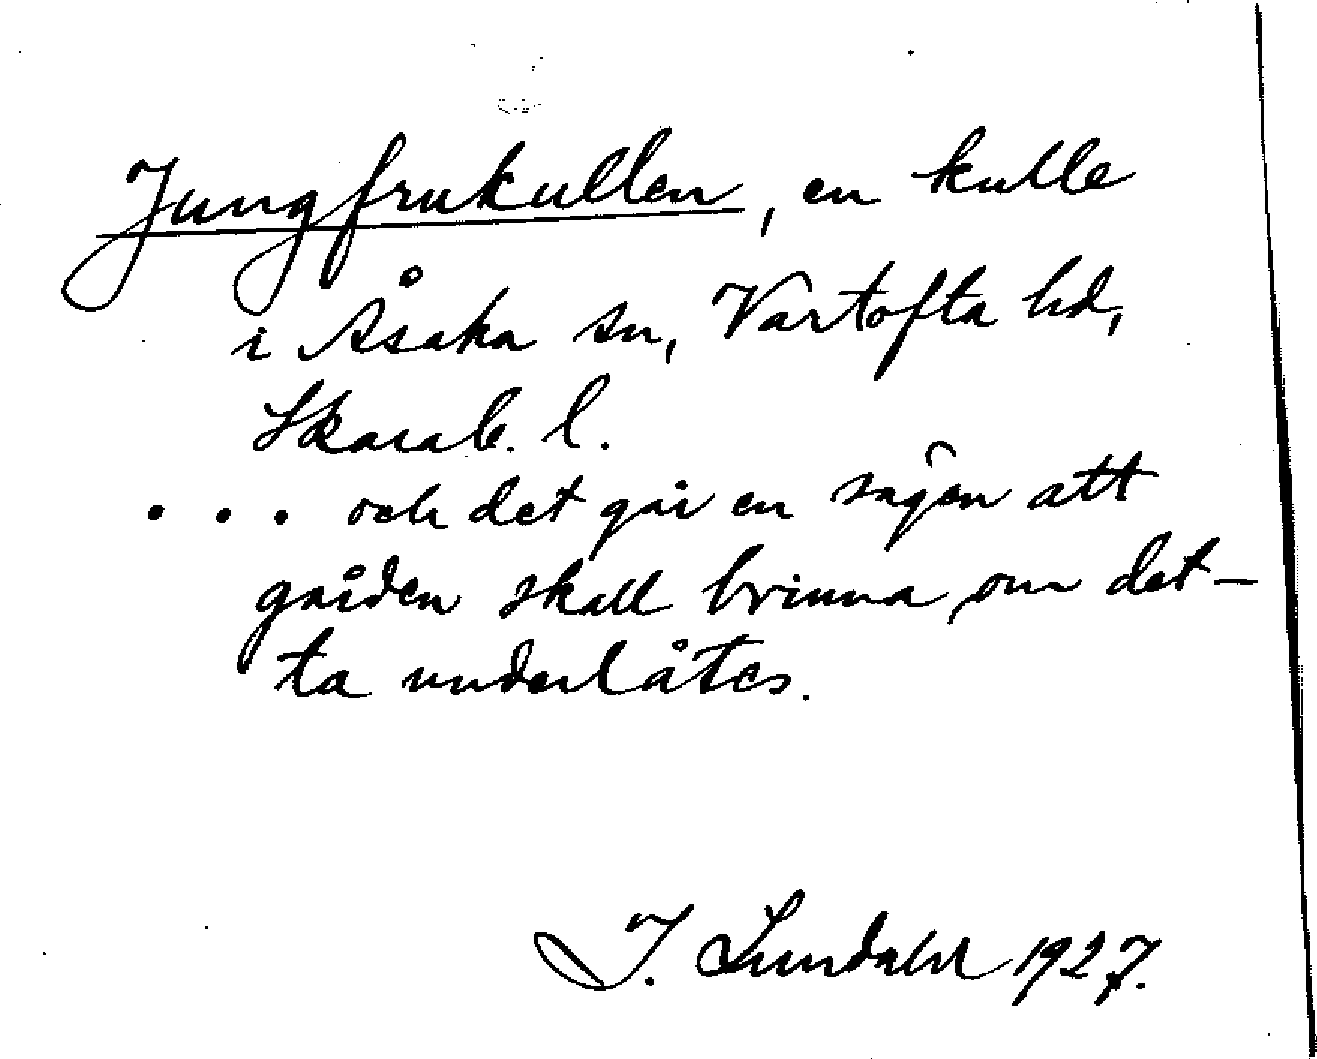 Jungfrukullen, en kulle
i Åsaka sn, Vartofta hd,
Skarab. l.
... och det går en sägen att
gården skall brinna, om det-
ta underlåtes.
I. Lundahl 1927.